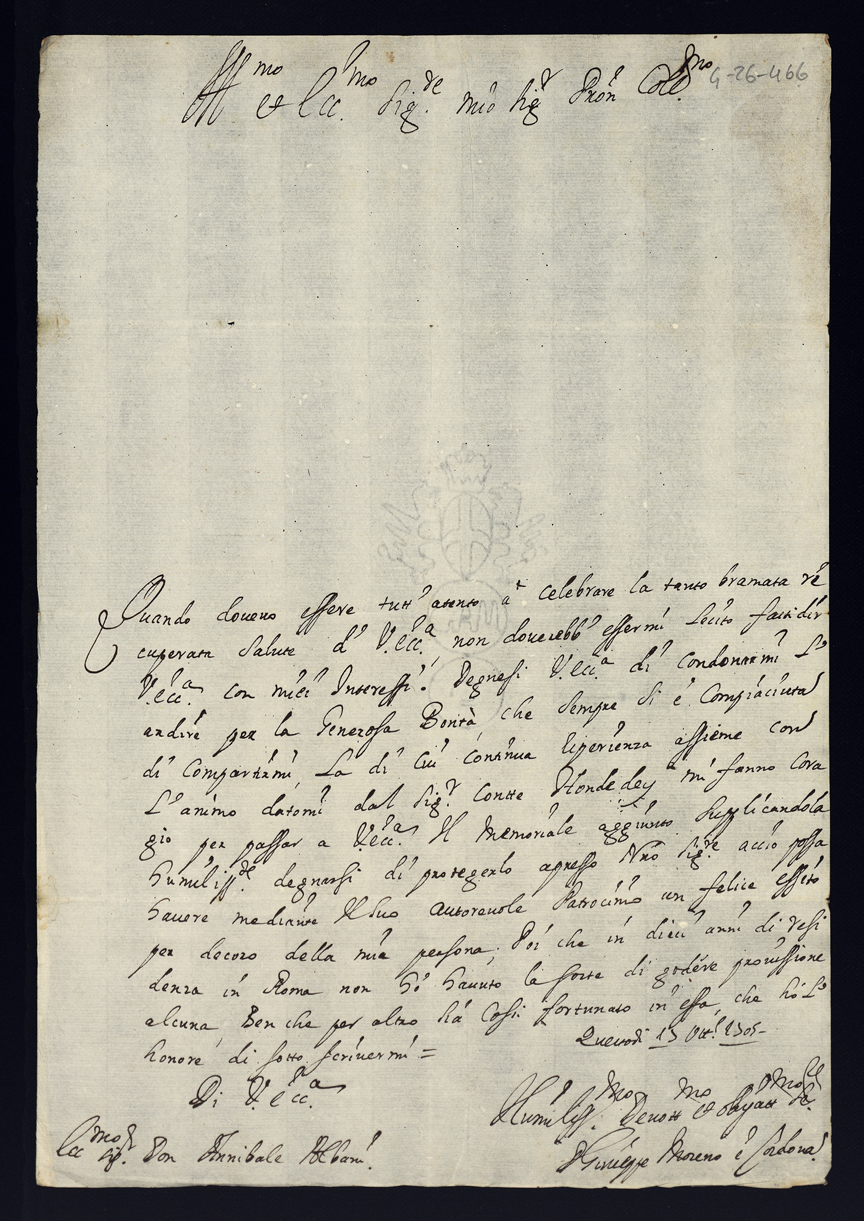 Ill.mo et Ecc.mo Sig.re mio Sig.r Pron Coll.mo
G-26-466
Quando doveuo essere tutt' atento à celebrare la tanto bramata ré
cuperata salute d' V.Ecc.a non doverebb' essermi lecito fastidir
V.Ecc.a con miei Interessi. Degnesi V.Ecc.a di condonarmi L'
ardire per la Generosa Bontà, che sempre si é compiaciuta
di compartirmi, La di cui continua sperienza assieme con
L'animo datomi dal Sig.r Contte Hondedey mi fanno cora
gio per passar a V.Ecc.a Il Memoriale aggiunto supplicandola
humiliss.te degnarsi di protegerlo apresso Nro Sig.re acciò possa
havere mediante Il suo autoreuole Patrocinio un felice essito
per decoro della mia persona; Poi che in dieci anni di resi
denza in Roma non hó havuto la sorte di godére prouissione
alcuna Ben che per altro ha cosi fortunato in essa, che hó L'
honoré di sotto scrivermi =
13 Ott.
Di V.Ecc.a
Humiliss.mo Devott.mo et obligatt.mo
Ecc.mo Sig.r Don Annibale Albani.
Giuseppe Moreno é Cordova